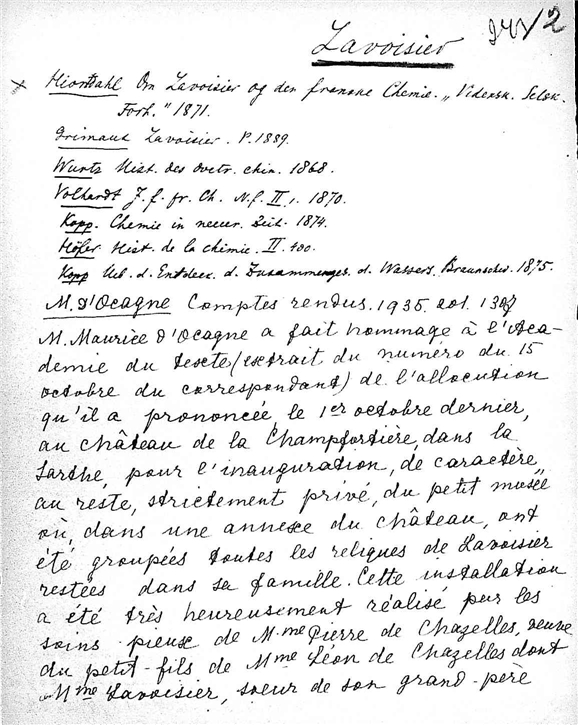 Lavoisier /2
x Hiortdahl Om Lavoisier og den franske Chemie. „Vidensk. Selsk.
Forh." 1871.
Grimaux Lavoisier. P. 1889.
Wurtz Hist. des doctr. chim. 1868.
Volhardt J. f. pr. Ch. N.f. II, 1870.
Kopp. Chemie in neuer. Zeit. 1874.
Höfer Hist. de la chimie. II. 400.
Kopp Ueb. d. Entdeck. d. Zusammenges. d. Wassers. Braunschw. 1875.
M. d'Ocagne Comptes rendus. 1935. 201.
M. Maurice d'Ocagne a fait hommage à l'Aca-
demie du texte (extrait du numéro du 15
octobre du correspondant) de l'allocution
qu'il a prononcée, le 1er octobre dernier,
au château de la Champfortière, dans la
Sarthe, pour l'inauguration, de caractère,
au reste, strictement privé, du petit musée
où, dans une annexe du château, ont
été groupées toutes les reliques de Lavoisier
restées dans sa famille. Cette installation
a été très heureusement réalisé par les
soins pieux de Mme Pierre de Chazelles, veuve
du petit-fils de Mme Léon de Chazelles dont
Mme Lavoisier, soeur de son grand-père